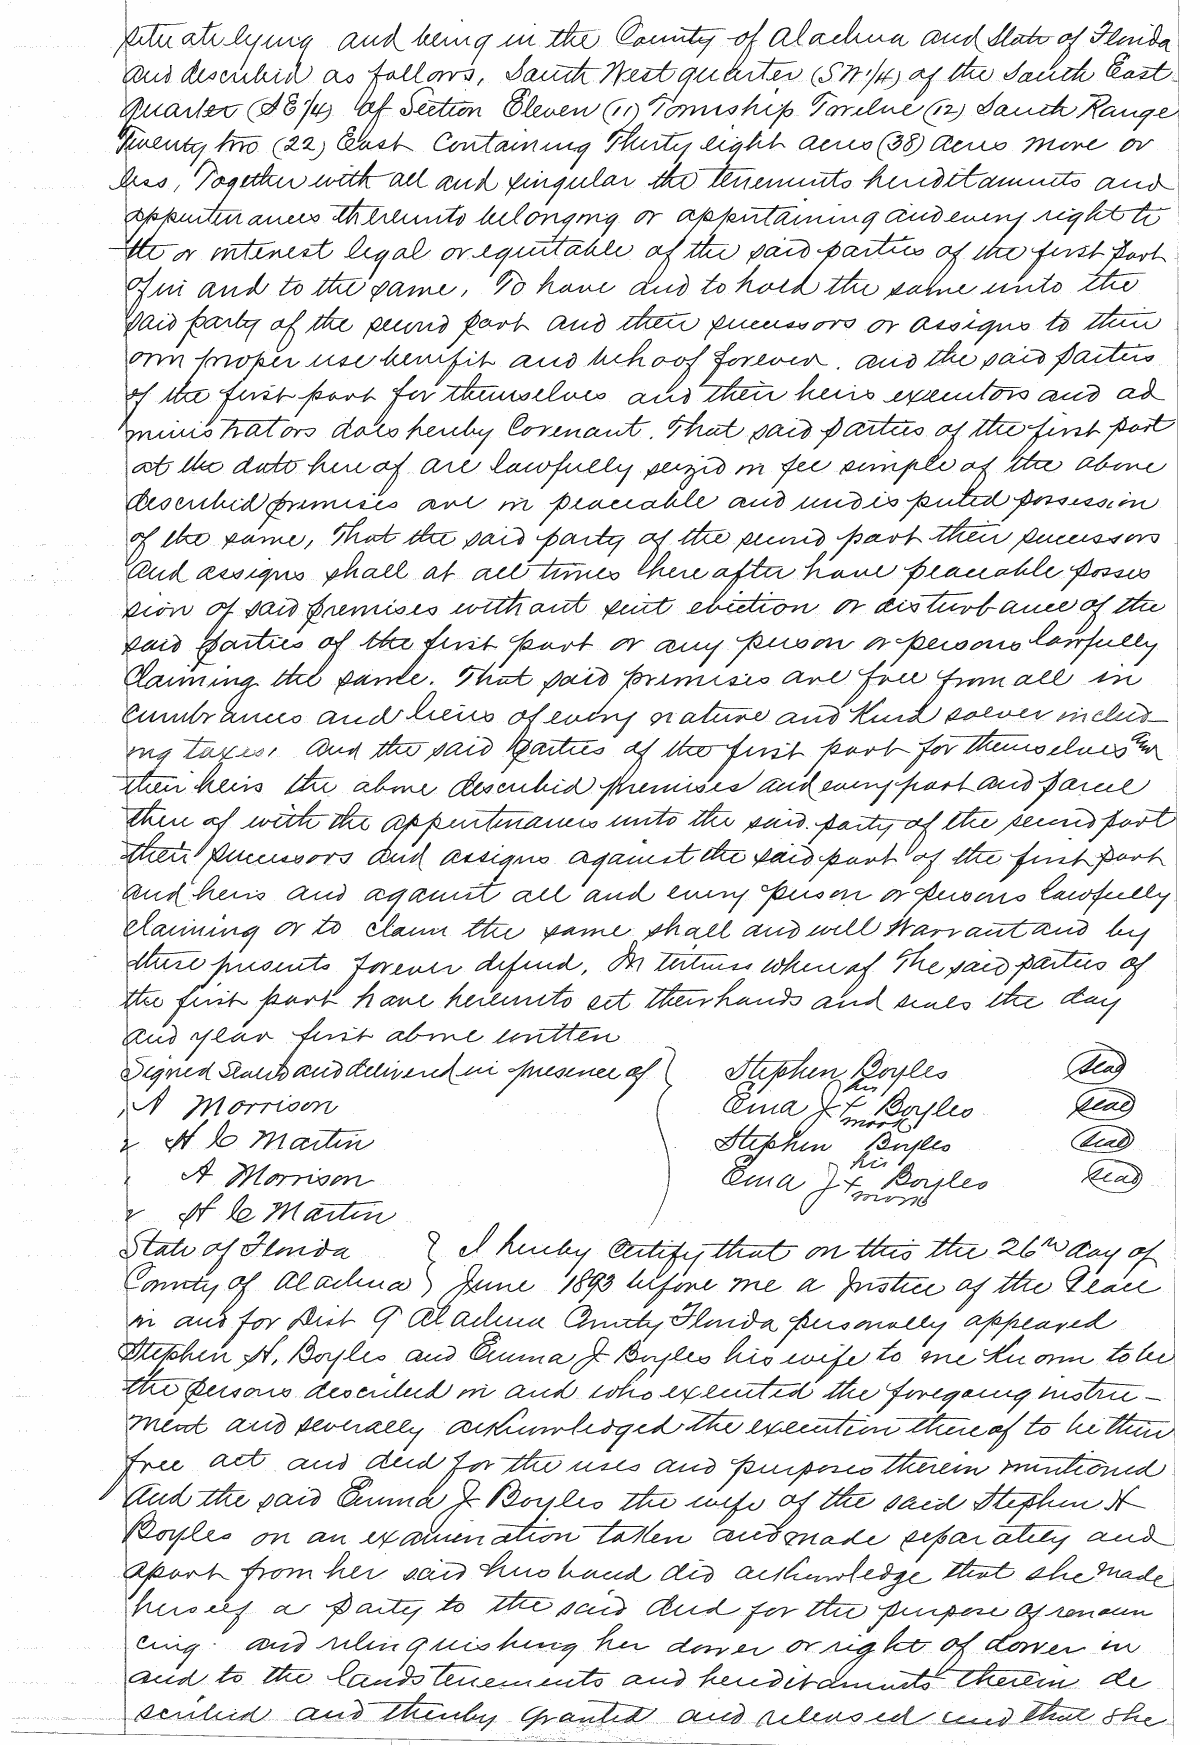 situate lying and being in the County of Alachua and State of Florida
and described as follows, South West quarter (SW 1/4) of the South East
quarter (SE 1/4) of Section Eleven (11) Township Twelve (12) South Range
Twenty two (22) East Containing Thirty eight acres (38) acres more or
less, Together with all and singular the tenements hereditaments and
appurtenances thereunto belonging or appurtaining and every right ti
tle or interest legal or equitable of the said parties of the first part
of in and to the same, To have and to hold the same unto the
said party of the second part and their successors or assigns to their
own proper use benifit and behoof forever. and the said parties
of the first part for themselves and their heirs executors and ad
ministrators does hereby Covenant. That said parties of the first part
at the date here of are lawfully seized in fee simple of the above
described premises are in peaceable and undisputed possession
of the same, That the said party of the second part their successors
and assigns shall at all times here after have peaceable posses
sion of said premises without suit eviction or disturbance of the
said parties of the first part or any person or persons lawfully
Claiming the same. That said premises are free from all in
cumbrances and liens of every nature and Kind soever includ–
ing taxes. And the said parties of the first part for themselves and
their heirs the above described premises and every part and parcel
there of with the appurtenances unto the said party of the second part
their successors and assigns against the said part of the first part
and heirs and against all and every person or persons lawfully
claiming or to claim the same shall and will Warrant and by
these presents forever defend. In witness where of The said parties of
the first part have hereunto set their hands and seals the day
and year first above written
Signed Sealed and delivered in presence of } Stephen Boyles (seal)
A Morrison Ema J his + mark Boyles (seal)
& H C Martin Stephen Boyles (seal)
A Morrison Ema J his + mark Boyles (seal)
& H C Martin
State of Florida } I hereby Certify that on this the 26th day of
County of Alachua } June 1893 before me a Justice of the Peace
in and for Dist 9 Alachua County Florida personally appeared
Stephen H. Boyles and Emma J Boyles his wife to me Known to be
the persons described in and who executed the foregoing instru–
ment and severally acknowledged the execution there of to be their
free act and deed for the uses and purposes therein mentioned
And the said Emma J Boyles the wife of the said Stephen H
Boyles on an examination taken and made separately and
apart from her said husband did acknowledge that she made
herself a party to the said deed for the purpose of renoun
cing and relinquishing her dower or right of dower in
and to the lands tenements and hereditaments therein de
scribed and thereby granted and released and that she